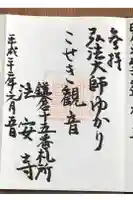 参拝
弘法大師ゆかり
こせき観音
鎌倉十五番札所
法安寺
平成二十二年二月五日